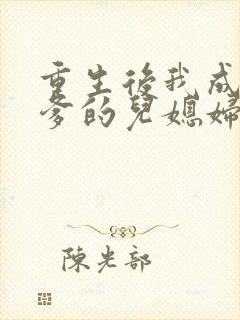 重生後我成
爹的兒媳婦
陳光部